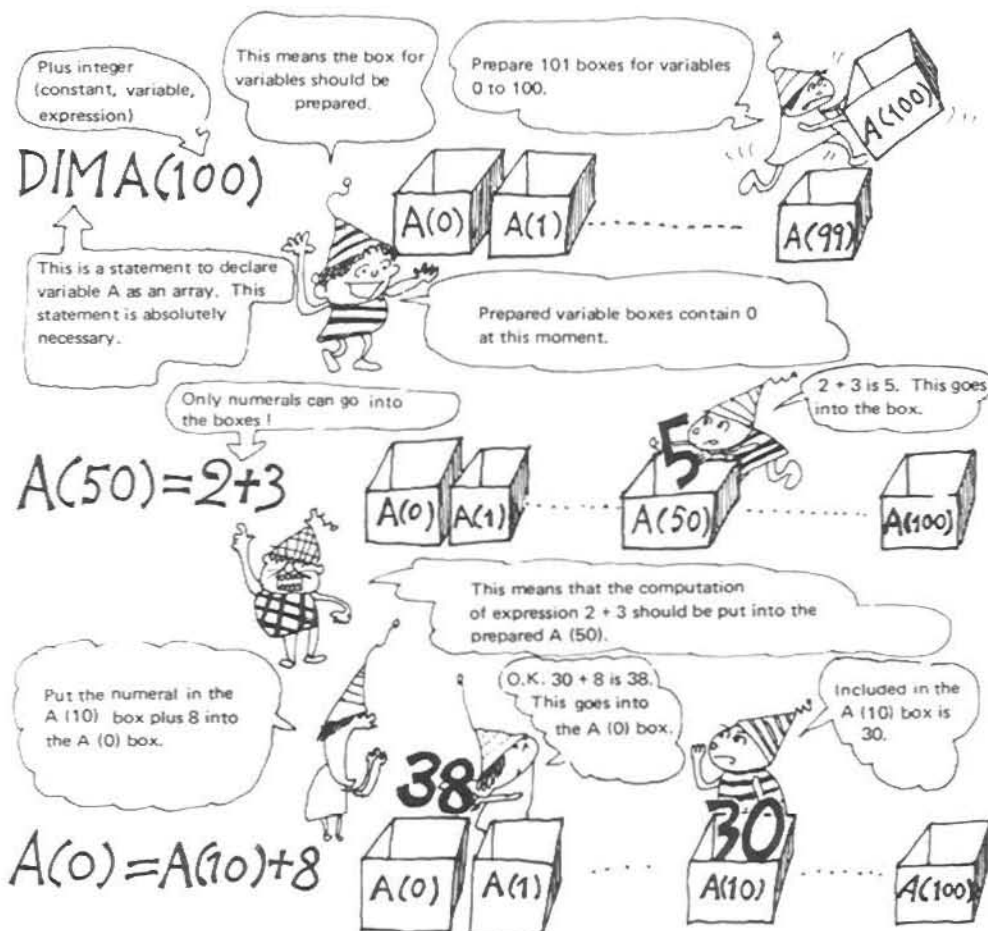 Plus integer
(constant, variable,
expression)
This means the box for
variables should be
prepared.
Prepare 101 boxes for variables
0 to 100.
DIMA(100)
A(0)
A(1)
A(99)
A(100)
This is a statement to declare
variable A as an array. This
statement is absolutely
necessary.
Prepared variable boxes contain 0
at this moment.
Only numerals can go into
the boxes !
2 + 3 is 5. This goes
into the box.
A(50)=2+3
5
A(0)
A(1)
A(50)
A(100)
This means that the computation
of expression 2 + 3 should be put into the
prepared A (50).
Put the numeral in the
A (10) box plus 8 into
the A (0) box.
O.K. 30 + 8 is 38.
This goes into
the A (0) box.
Included in the
A (10) box is
30.
38
30
A(0)=A(10)+8
A(0)
A(1)
A(10)
A(100)